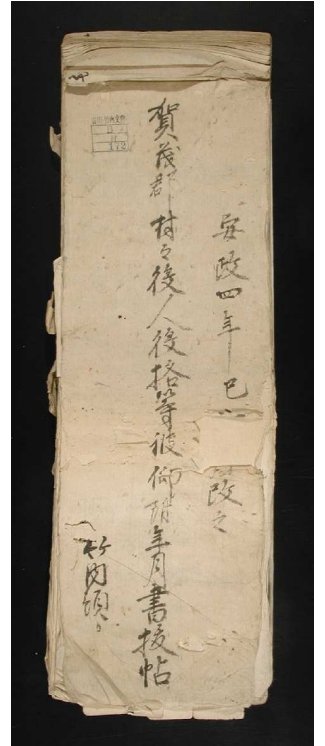 安政四年巳 改之
賀茂郡村々役人役格等被仰付年月書抜帖
竹内